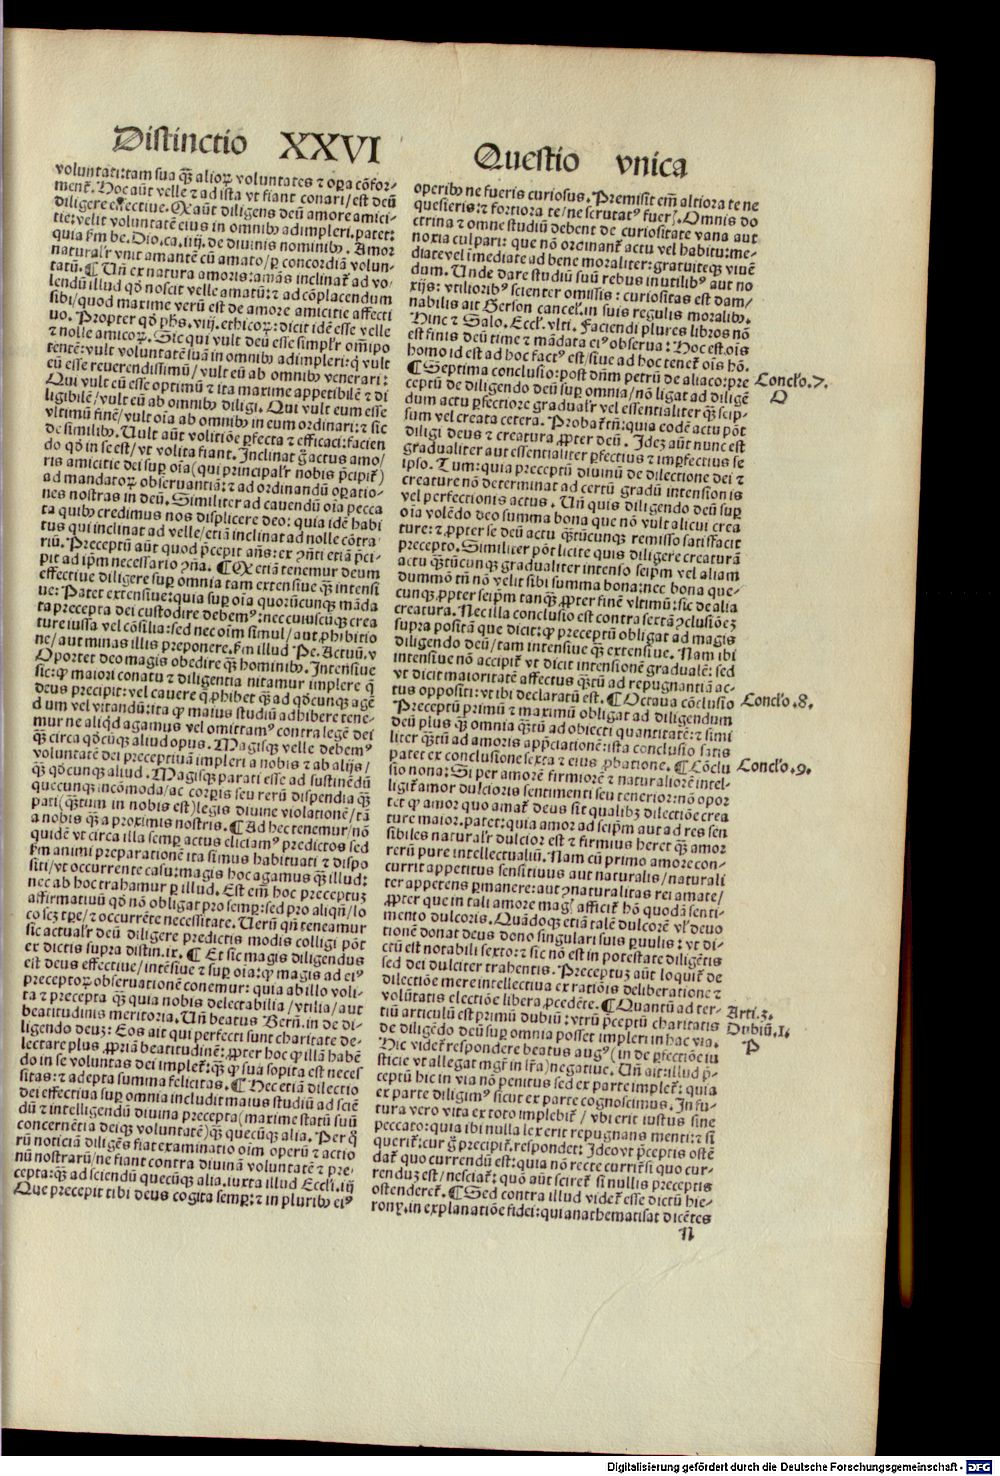 Distinctio XXVI
voluntati: tam sua q̄ȝ alioꝝ voluntates ⁊ oꝑa cōfor-
ment᷑. Hoc aūt velle ⁊ ad ista vt fiant conari / est deū
diligere effectiue. Qꝛ aūt diligens deū amore amici-
tie: velit voluntatē eius in omnibꝰ adimpleri. patet:
quia ẜm be. Dio. ca. iiij. de diuinis nominibꝰ. Amor
naturalr̄ vnit amantē cū amato / ꝑ concordiā volun-
tatū. ¶ Uñ ex natura amoris: amās inclinat᷑ ad vo-
lendū illud qd̄ noscit velle amatū: ⁊ ad cōplacendum
sibi / quod maxime verū est de amore amicitie affecti
uo. Propter qd̄ phs̄. viij. ethicoꝝ: dicit idē esse velle
⁊ nolle amicoꝝ. Sic qui vult deū esse simplr̄ om̄ipo
tentē: vult voluntatē suā in omnibꝰ adimpleri: q̄ vult
eū esse reuerendissimū / vult eū ab omnibꝰ venerari:
Qui vult eū esse optimū ⁊ ita maxime appetibilē ⁊ di
ligibilē / vult eū ab omnibꝰ diligi. Qui vult eum esse
vltimū finē / vult oīa ab omnibꝰ in eum ordinari: ⁊ sic
de similibꝰ. Uult aūt volitiōe ꝑfecta ⁊ efficaci: facien
do qd̄ in se est / vt volita fiant. Inclinat g̊ actus amo /
ris amicitie dei suꝑ oīa (qui principalr̄ nobis p̄cipit᷑)
ad mandatoꝝ obseruantiā: ⁊ ad ordinandū oꝑatio-
nes nostras in deū. Similiter ad cauendū oīa pecca
ta quibꝰ credimus nos displicere deo: quia idē habi
tus qui inclinat ad velle / etiā inclinat ad nolle cōtra
riū. Preceptū aūt quod p̄cepit añs: ex ꝯn̄ti etiā p̄ci-
pit ad ip̄m necessario ꝯña. ¶ Qꝛ etiā tenemur deum
effectiue diligere suꝑ omnia tam extensiue q̄ȝ intensi
ue: Patet extensiue: quia suꝑ oīa quorūcunqȝ māda
ta precepta dei custodire debemꝰ: nec cuiuscūqȝ crea
ture iussa vel cōsilia: sed nec oīm simul / aut ꝓhibitio
ne / aut minas illis preponere. ẜm illud Pe. Actuū. v
Oportet deo magis obedire q̄ȝ hominibꝰ. Intensiue
sic: qꝫ maiori conatu ⁊ diligentia nitamur implere q̄
deus precipit: vel cauere q̄ ꝓhibet q̄ȝ ad qd̄cunqȝ agē
dum vel vitandū: ita qꝫ maius studiū adhibere tene-
mur ne aliqd̄ agamus vel omittamꝰ contra legē dei
q̄ȝ circa qd̄cūqȝ aliud opus. Magisqȝ velle debemꝰ
voluntatē dei preceptiuā impleri a nobis ⁊ ab alijs /
q̄ȝ qd̄cunqȝ aliud. Magisqȝ parati esse ad sustinēdū
quecunqȝ incōmoda / ac corꝑis seu rerū dispendia q̄ȝ
pati (q̄ȝtum in nobis est) legis diuine violationē / tā
a nobis q̄ȝ a proximis nostris. ¶ Ad hec tenemur / nō
quidē vt circa illa semꝑ actus eliciamꝰ predictos sed
ẜm animi preparationē ita simus habituati ⁊ dispo
siti / vt occurrente casu: magis hoc agamus q̄ȝ illud:
nec ab hoc trahamur ꝑ illud. Est em̄ hoc preceptuȝ
affirmatiuū qd̄ nō obligat pro semꝑ: sed pro aliqn̄ / lo
co scȝ tꝑe / ⁊ occurrēte necessitate. Uerū qñ teneamur
sic actualr̄ deū diligere predictis modis colligi pōt
ex dictis supra distin. ix. ¶ Et sic magis diligendus
est deus effectiue / intēsiue ⁊ suꝑ oīa: qꝫ magis ad eiꝰ
preceptoꝝ obseruationē conemur: quia ab illo voli-
ta ⁊ precepta q̄ȝ quia nobis delectabilia / vtilia / aut
beatitudinis meritoria. Uñ beatus Bern̄. in de di-
ligendo deuȝ: Eos ait qui perfecti sunt charitate de-
lectare plus ꝓpriā beatitudinē: ꝓpter hoc qꝫ illā habē
do in se voluntas dei implet᷑: q̄ȝ qꝫ sua sopita est neces
sitas: ⁊ adepta summa felicitas. ¶ Hec etiā dilectio
dei effectiua suꝑ omnia includit maius studiū ad sciē
dū ⁊ intelligendū diuina precepta (maxime statū suū
concernētia deiqȝ voluntatē) q̄ȝ quecūqȝ alia. Per q̄
rū noticiā diligēs fiat examinatio oīm operū ⁊ actio
nū nostrarū / ne fiant contra diuinā voluntatē ⁊ pre-
cepta: q̄ȝ ad sciendū quecūqȝ alia. iuxta illud Eccl̄i. iij
Que precepit tibi deus cogita semꝑ: ⁊ in pluribꝰ eiꝰ
Questio vnica
operibꝰ ne fueris curiosus. Premisit em̄ altiora te ne
quesieris: ⁊ fortiora te / ne scrutatꝰ fuer̄. Omnis do
ctrina ⁊ omne studiū debent de curiositate vana aut
noxia culpari: que nō ordinant᷑ actu vel habitu: me-
diate vel īmediate ad bene moraliter: gratuiteqȝ viuē
dum. Unde dare studiū suū rebus inutilibꝰ aut no
xijs: vtilioribꝰ scienter omissis: curiositas est dam /
nabilis ait Gerson cancel̄. in suis regulis moralibꝰ.
Hinc ⁊ Salo. Eccl̄. vlti. Faciendi plures libros nō
est finis deū time ⁊ mādata eiꝰ obserua: Hoc est oīs
homo id est ad hoc factꝰ est / siue ad hoc tenet᷑ oīs hō.
¶ Septima conclusio: post dūm petrū de aliaco: pre
ceptū de diligendo deū suꝑ omnia / nō ligat ad diligē
dum actu ꝑfectiore gradualr̄ vel essentialiter q̄ȝ seip-
sum vel creata cetera. Probat᷑ tn̄: quia codē actu pōt
diligi deus ⁊ creatura ꝓpter deū. Ideȝ aūt nunc est
gradualiter aut essentialiter ꝑfectius ⁊ imꝑfectius se
ipso. Tum: quia preceptū diuinū de dilectione dei ⁊
creature nō determinat ad certū gradū intensionis
vel perfectionis actus. Uñ quis diligendo deū suꝑ
oīa volēdo deo summa bona que nō vult alicui crea
ture: ⁊ ꝓpter se deū actu q̄ȝtūcunqȝ remisso satisfacit
precepto. Similiter pōt licite quis diligere creaturā
actu q̄ȝtūcunqȝ gradualiter intenso seip̄m vel aliam
dummō tn̄ nō velit sibi summa bona: nec bona que-
cunqȝ ꝓpter seip̄m tanqȝ ꝓpter finē vltimū: sic de alia
creatura. Nec illa conclusio est contra sectā ꝯclusiōeȝ
supra positā que dicit: qꝫ preceptū obligat ad magis
diligendo deū / tam intensiue q̄ȝ extensiue. Nam ibi
intensiue nō accipit᷑ vt dicit intensionē gradualē: sed
vt dicit maioritatē affectus q̄ȝtū ad repugnantiā ac-
tus oppositi: vt ibi declaratū est. ¶ Octaua cōclusio
Preceptū primū ⁊ maximū obligat ad diligendum
deū plus q̄ȝ omnia q̄ȝtū ad obiecti quantitatē: ⁊ simi
liter q̄ȝtū ad amoris app̄ciationē: ista conclusio satis
patet ex conclusione sexta ⁊ eius ꝓbatione. ¶ Cōclu
sio nona: Si per amorē firmiorē ⁊ naturaliorē intel-
ligit᷑ amor dulcioris sentimenti seu tenerior: nō opor
tet qꝫ amor quo amat᷑ deus sit qualibȝ dilectiōe crea
ture maior. patet: quia amor ad seip̄m aut ad res sen
sibiles naturalr̄ dulcior est ⁊ firmius heret q̄ȝ amor
rerū pure intellectualiū. Nam cū primo amore con-
currit appetitus sensitiuus aut naturalis / naturali
ter appetens ꝑmanere: aut ꝯnaturalitas rei amate /
ꝓpter que in tali amore magꝭ afficit᷑ hō quodā senti-
mento dulcoris. Quādoqȝ etiā talē dulcorē vl̄ deuo
tionē donat deus dono singulari suis ꝑuulis: vt di-
ctū est notabili sexto: ⁊ sic nō est in potestate diligētis
sed dei dulciter trahentis. Preceptuȝ aūt loquit᷑ de
dilectiōe mere intellectiua ex ratiōis deliberatione ⁊
volūtatis electiōe libera ꝓcedēte. ¶ Quantū ad ter-
tiū articulū est primū dubiū: vtrū p̄ceptū charitatis
de diligēdo deū suꝑ omnia posset impleri in hac via.
Hic videt᷑ respondere beatus augꝰ (in de ꝑfectiōe iu
sticie vt allegat mgr̄ in lr̄a) negatiue. Uñ ait: illud p̄-
ceptū hic in via nō penitus sed ex parte implet᷑: quia
ex parte diligimꝰ sicut ex parte cognoscimus. In fu-
tura vero vita ex toto implebit᷑ / vbi erit iustus sine
peccato: quia ibi nulla lex erit repugnans menti: ⁊ si
querit᷑: cur g̊ precipit᷑. respondet: Ideo vt p̄ceptis ostē
dat᷑ quo currendū est: quia nō recte currit᷑ si quo cur-
renduȝ est / nesciat᷑: quō aūt sciret᷑ si nullis preceptis
ostenderet᷑. ¶ Sed contra illud videt᷑ esse dictū hie-
ronꝝ. in explanatiōe fidei: qui anathematisat dicētes
Conclo. 7.
O
Conclo. 8.
Conclo. 9.
Arti. 3.
Dubiū. 1.
P
n
Digitalisierung gefördert durch die Deutsche Forschungsgemeinschaft - DFG